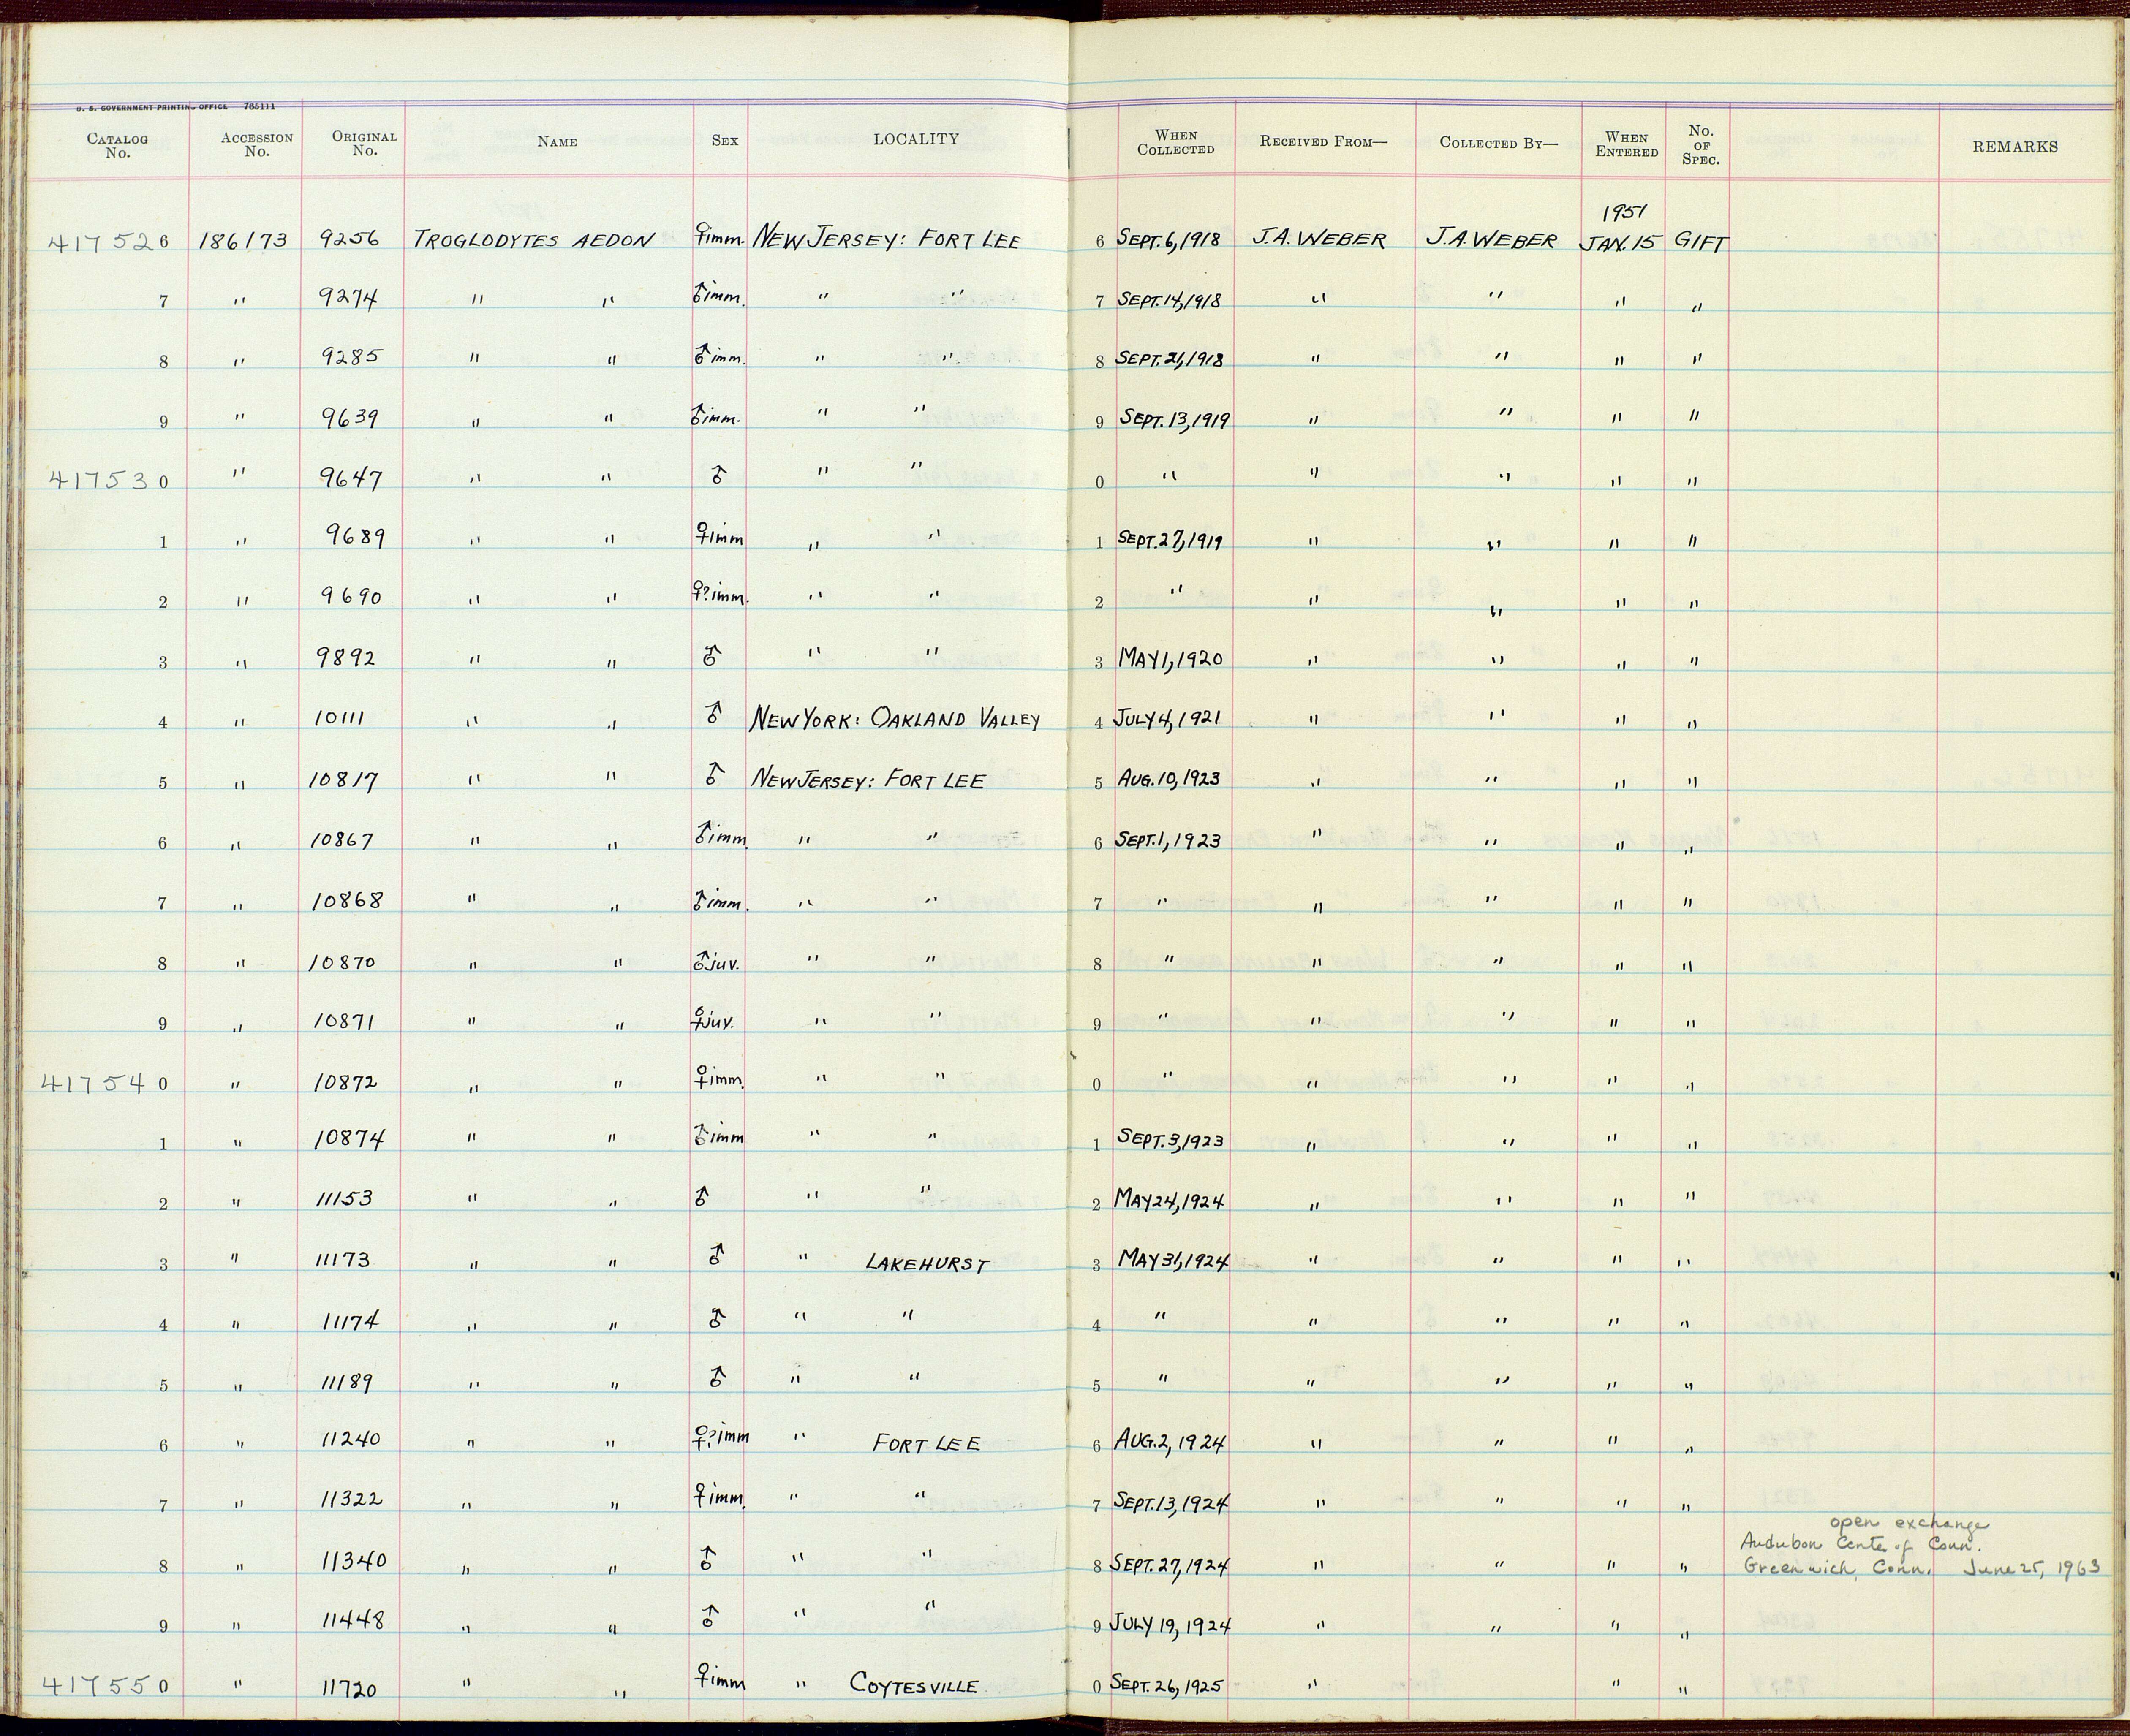 U. S. GOVERNMENT PRINTING OFFICE 765111
CATALOG No. ACCESSION No. ORIGINAL No. NAME SEX LOCALITY WHEN COLLECTED RECEIVED FROM— COLLECTED BY— WHEN ENTERED No. OF SPEC. REMARKS
1951
417526 186173 9256 TROGLODYTES AEDON ♀imm. NEW JERSEY: FORT LEE 6 SEPT. 6, 1918 J.A. WEBER J.A. WEBER JAN. 15 GIFT
7 " 9274 " " ♂imm. " " 7 SEPT. 14, 1918 " " " "
8 " 9285 " " ♂imm. " " 8 SEPT. 21, 1918 " " " "
9 " 9639 " " ♂imm. " " 9 SEPT. 13, 1919 " " " "
417530 " 9647 " " ♂ " " 0 " " " " "
1 " 9689 " " ♀imm " " 1 SEPT. 27, 1919 " " " "
2 " 9690 " " ♀?imm. " " 2 " " " " "
3 " 9892 " " ♂ " " 3 MAY 1, 1920 " " " "
4 " 10111 " " ♂ NEW YORK: OAKLAND VALLEY 4 JULY 4, 1921 " " " "
5 " 10817 " " ♂ NEW JERSEY: FORT LEE 5 AUG. 10, 1923 " " " "
6 " 10867 " " ♂imm. " " 6 SEPT. 1, 1923 " " " "
7 " 10868 " " ♂imm. " " 7 " " " " "
8 " 10870 " " ♂juv. " " 8 " " " " "
9 " 10871 " " ♀juv. " " 9 " " " " "
417540 " 10872 " " ♀imm. " " 0 " " " " "
1 " 10874 " " ♂imm " " 1 SEPT. 3, 1923 " " " "
2 " 11153 " " ♂ " " 2 MAY 24, 1924 " " " "
3 " 11173 " " ♂ " LAKEHURST 3 MAY 31, 1924 " " " "
4 " 11174 " " ♂ " " 4 " " " " "
5 " 11189 " " ♂ " " 5 " " " " "
6 " 11240 " " ♀?imm " FORT LEE 6 AUG. 2, 1924 " " " "
7 " 11322 " " ♀imm. " " 7 SEPT. 13, 1924 " " " "
open exchange
Audubon Center of Conn.
8 " 11340 " " ♂ " " 8 SEPT. 27, 1924 " " " " Greenwich, Conn. June 25, 1963
9 " 11448 " " ♂ " " 9 JULY 19, 1924 " " " "
417550 " 11720 " " ♀imm " COYTESVILLE 0 SEPT. 26, 1925 " " "